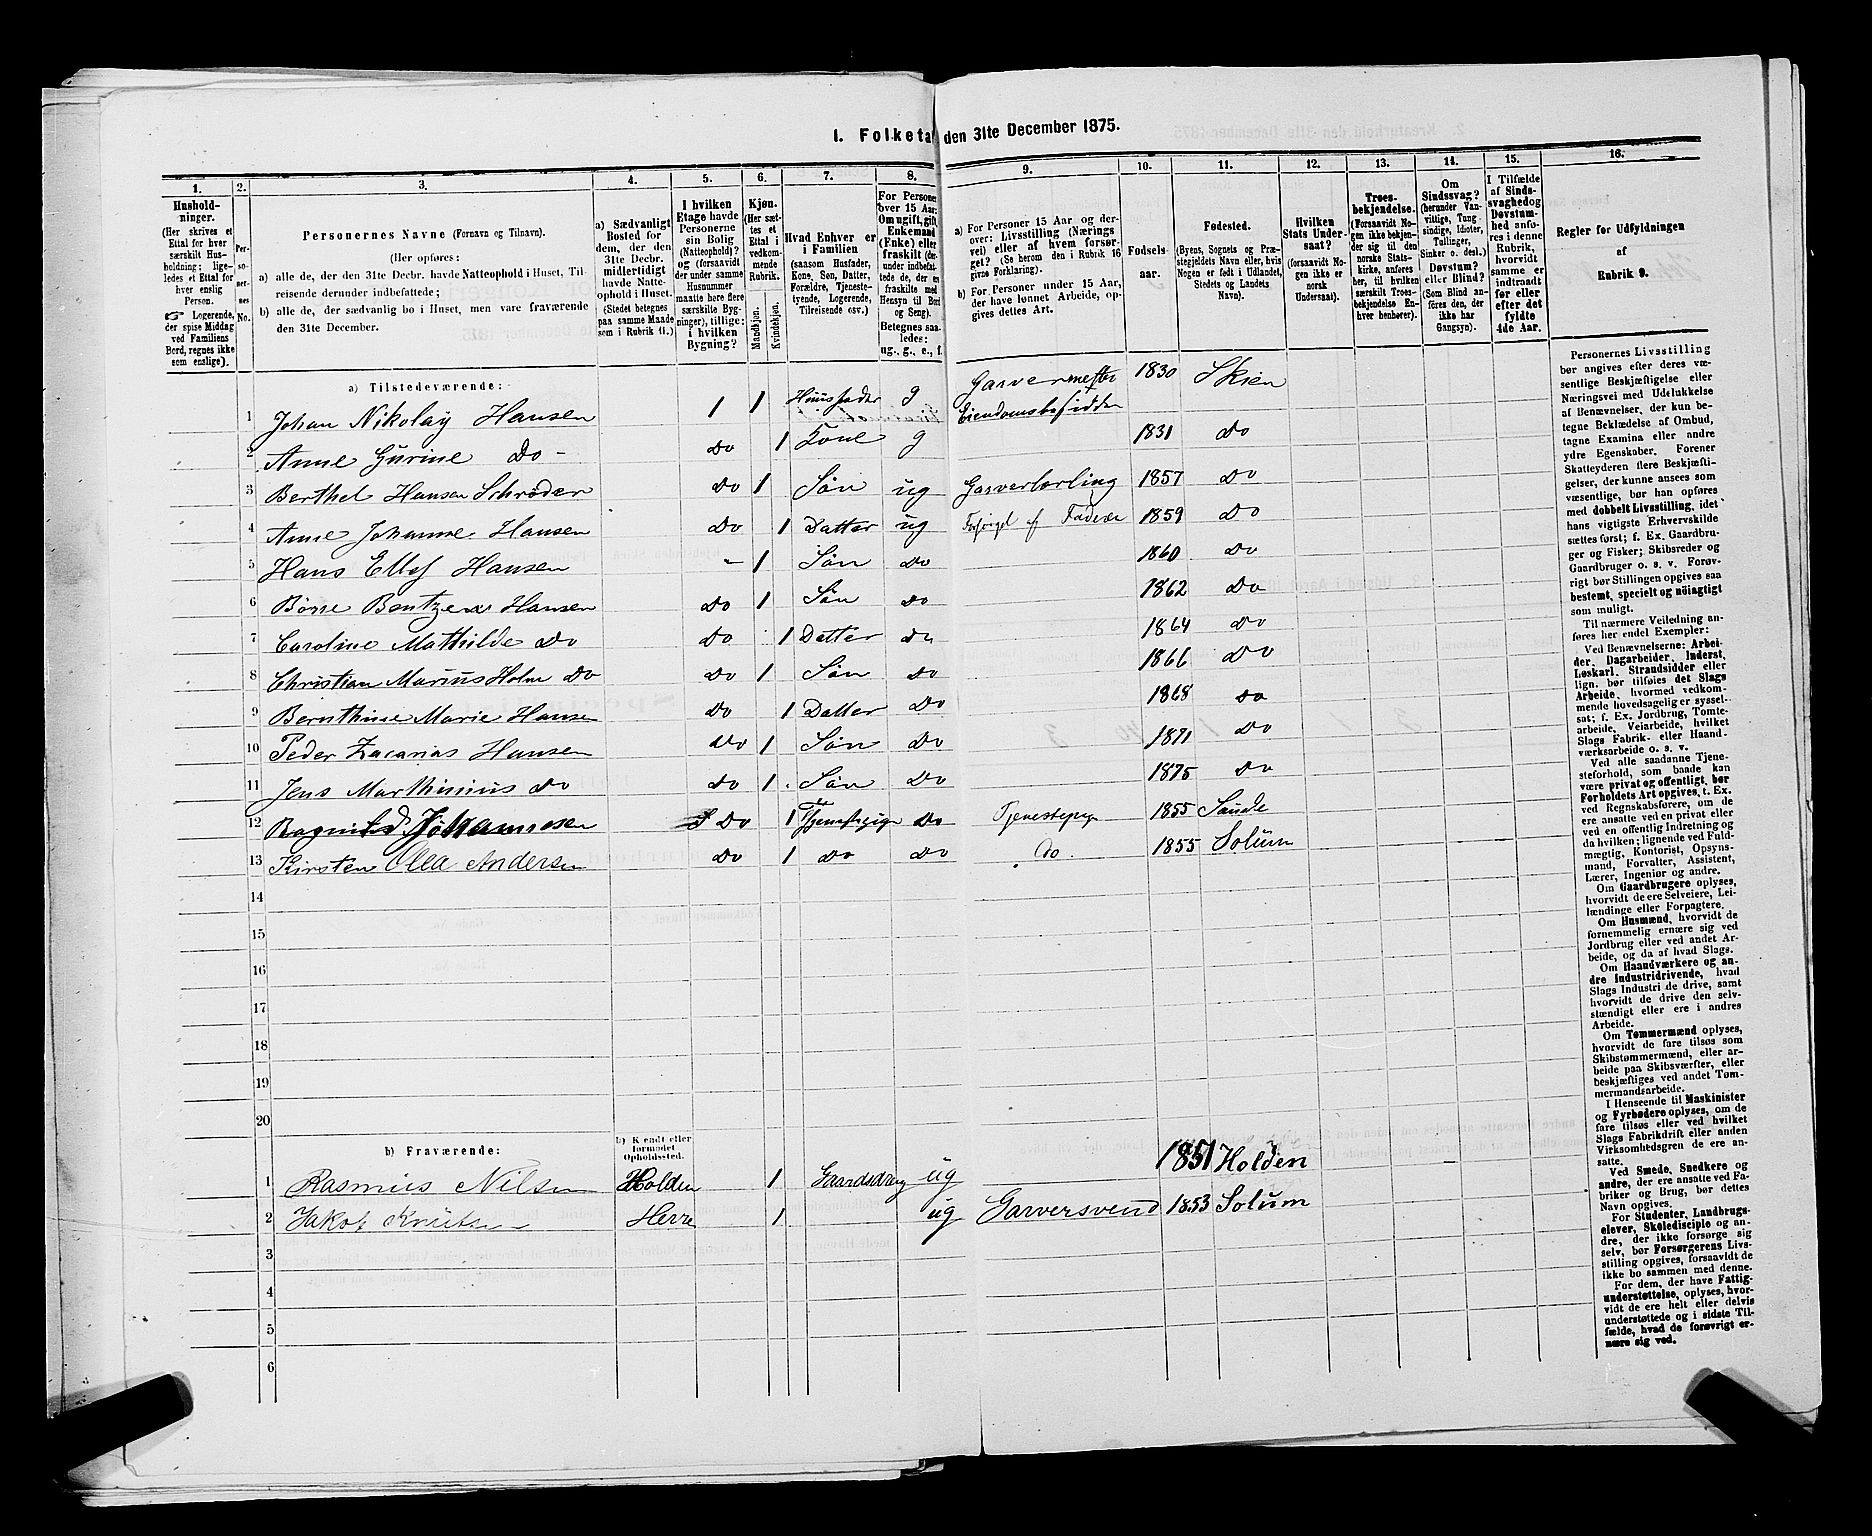 I. Folketa den 31te December 1875.
1. 2. 3. 4. 5. 6. 7. 8. 9. 10. 11. 12. 13. 14. 15. 16.
Hushold-
ninger.
(Her skrives et
Ettal for hver
særskilt Hus-
holdning; lige-
ledes et Ettal for
hver enslig
Person.
☞ Logerende,
der spise Middag
ved Familiens
Bord, regnes ikke
som enslige).
Per-
so-
ner-
nes
No.
Personernes Navne (Fornavn og Tilnavn).
(Her opføres:
a) alle de, der den 31te Decbr. havde Natteophold i Huset, Til-
reisende derunder indbefattede;
b) alle de, der sædvanlig bo i Huset, men vare fraværende
den 31te December.
a) Sædvanligt
Bosted for
dem, der den
31te Decbr.
midlertidigt
havde Natte-
ophold i Huset.
(Stedet betegnes
paa samme Maade
som i Rubrik 11.)
I hvilken
Etage havde
Personerne
sin Bolig
(Natteophold)?
og (forsaavidt
der under samme
Husnummer
maatte høre flere
særskilte Byg-
ninger), tillige:
i hvilken
Bygning?
Kjøn.
(Her sæt-
tes et
Ettal i
vedkom-
mende
Rubrik.
Mandkjøn.
Kvindekjøn.
Hvad Enhver er
i Familien
(saasom Husfader,
Kone, Søn, Datter,
Forældre, Tjeneste-
tyende, Logerende,
Tilreisende osv.)
For Persone
over 15 Aar:
Om ugift, gift
Enkemand
(Enke) eller
fraskilt (der-
under indbefat-
tede de, der ere
fraskilte med
Hensyn til Bord
og Seng).
Betegnes saa-
ledes:
ug., g., e., f.
a) For Personer 15 Aar og der-
over: Livsstilling (Nærings
vei) eller af hvem forsør-
get? (Se herom den i Rubrik 16
givne Forklaring).
b) For Personer under 15 Aar,
der have lønnet Arbeide, op-
gives dettes Art.
Fødsels-
aar.
Fødested.
(Byens, Sognets og Præ-
stegjeldets Navn eller, hvis
Nogen er født i Udlandet,
Stedets og Landets
Navn).
Hvilken
Stats Under-
saat?
(forsaavidt No-
gen ikke er
norsk
Undersaat).
Troes-
bekjendelse.
(Forsaavidt No-
gen ikke bekjen-
der sig til den
norske Stats-
kirke, anføres
her, til hvilken
særskilt Troes-
bekjendelse En-
hver henhører).
Om
Sindssvag?
(herunder Van-
vittige, Tung-
sindige, Idioter,
Tullinger,
Sinker o. desl.)
Døvstum?
eller Blind?
(Som Blind an-
føres den, der
ikke har
Gangsyn).
I Tilfælde
af Sinds-
svaghed og
Døvstum-
hed anfø-
res i denne
Rubrik,
hvorvidt
samme er
indtraadt
før eller
efter det
fyldte
4de Aar.
Regler for Udfyldningen
af
Rubrik 9.
a) Tilstedeværende:
1 Johan Nikolay Hansen 1 1 Huusfader g Garvermester 1830 Skien
Eiendomsbesidder
2 Anne Gurine Do - Do 1 Kone g 1831 Do
3 Berthel Hansen Schrøder Do 1 Søn ug Garverlærling 1857 Do
4 Anne Johanne Hansen Do 1 Datter ug Forsørget af Faderen 1859 Do
5 Hans Ellef Hansen - 1 Søn Do 1860 Do
6 Børre Bentzen Hansen Do 1 Søn Do 1862 Do
7 Caroline Mathilde Do Do 1 Datter Do 1864 Do
8 Christian Marius Holm Do Do 1 Søn Do 1866 Do
9 Bernthine Marie Hansen Do 1 Datter Do 1868 Do
10 Peder Zacarias Hansen Do 1 Søn Do 1871 Do
11 Jens Marthinius Do Do 1 Søn Do 1875 Do
12 Ragnild Johannesen Do 1 Tjenestpige Do Tjenestepige 1855 Saude
13 Kirsten Olea Andersen Do 1 Do Do Do 1855 Solum
14
15
16
17
18
19
20
b) Fraværende:
b) Kjendt eller
formodet
Opholdssted.
1 Rasmus Nilsen Holden 1 Gaardsdreng ug 1851 Holden
2 Jakob Knutsen Herre 1 ug Garversvend 1853 Solum
3
4
5
6
Personernes Livsstilling
bør angives efter deres væ-
sentlige Beskjæftigelse eller
Næringsvei med Udelukkelse
af Benævnelser, der kun be-
tegne Beklædelse af Ombud,
tagne Examina eller andre
ydre Egenskaber. Forener
Skatteyderen flere Beskjæfti-
gelser, der kunne ansees som
væsentlige, bør han opføres
med dobbelt Livsstilling, idet
hans vigtigste Erhvervskilde
sættes først; f. Ex. Gaardbru-
ger og Fisker; Skibsreder og
Gaardbruger o. s. v. Forøv-
rigt bør Stillingen opgives saa
bestemt, specielt og nöiagtigt
som muligt.
Til nærmere Veiledning an-
føres her endel Exempler:
Ved Benævnelserne: Arbei-
der, Dagarbeider, Inderst,
Løskarl, Strandsidder eller
lign. bør tilføies det Slags
Arbeide, hvormed vedkom-
mende hovedsagelig er syssel-
sat; f. Ex. Jordbrug, Tomte-
arbeide, Veiarbeide, hvilket
Slags Fabrik- eller Haand-
værksarbeide o. s. v.
Ved alle saadanne Tjene-
steforhold, som baade kan
være privat og offentligt, bør
Forholdets Art opgives, t. Ex.
ved Regnskabsførere, om de
ere ansatte ved en privat eller
ved en offentlig Indretning og
da hvilken; lignende ved Fuld-
mægtig, Kontorist, Opsyns-
mand, Forvalter, Assistent,
Lærer, Ingeniør og andre.
Om Gaardbrugere oplyses,
hvorvidt de ere Selveiere, Lei-
lændinge eller Forpagtere.
Om Husmænd, hvorvidt de
fornemmelig ernære sig ved
Jordbrug eller ved andet Ar-
beide, og da af hvad Slags.
Om Haandværkere og an-
dre Industridrivende, hvad
Slags Industri de drive, samt
hvorvidt de drive den selv-
stændigt eller ere i andres
Arbeide.
Om Tømmermænd oplyses,
hvorvidt de fare tilsøs som
Skibstømmermænd, eller ar-
beide paa Skibsværfter, eller
beskjæftiges ved andet Tøm-
mermandsarbeide.
I Henseende til Maskinister
og Fyrbødere oplyses, om de
fare tilsøs eller ved hvilket
Slags Fabrikdrift eller anden
Virksomhedsgren de ere an-
satte.
Ved Smede, Snedkere og
andre, der ere ansatte ved Fa-
briker og Brug, bør dettes
Navn opgives.
For Studenter, Landbrugs-
elever, Skoledisciple og an-
dre, der ikke forsørge sig
selv, bør Forsørgerens Livs-
stilling opgives, forsaavldt de
ikke bo sammen med denne.
For dem, der have Fattig-
understøttelse, oplyses, hvor-
vidt de ere helt eller delvis
understøttede og i sidste Til-
fælde, hvad de forøvrigt er-
nære sig ved.